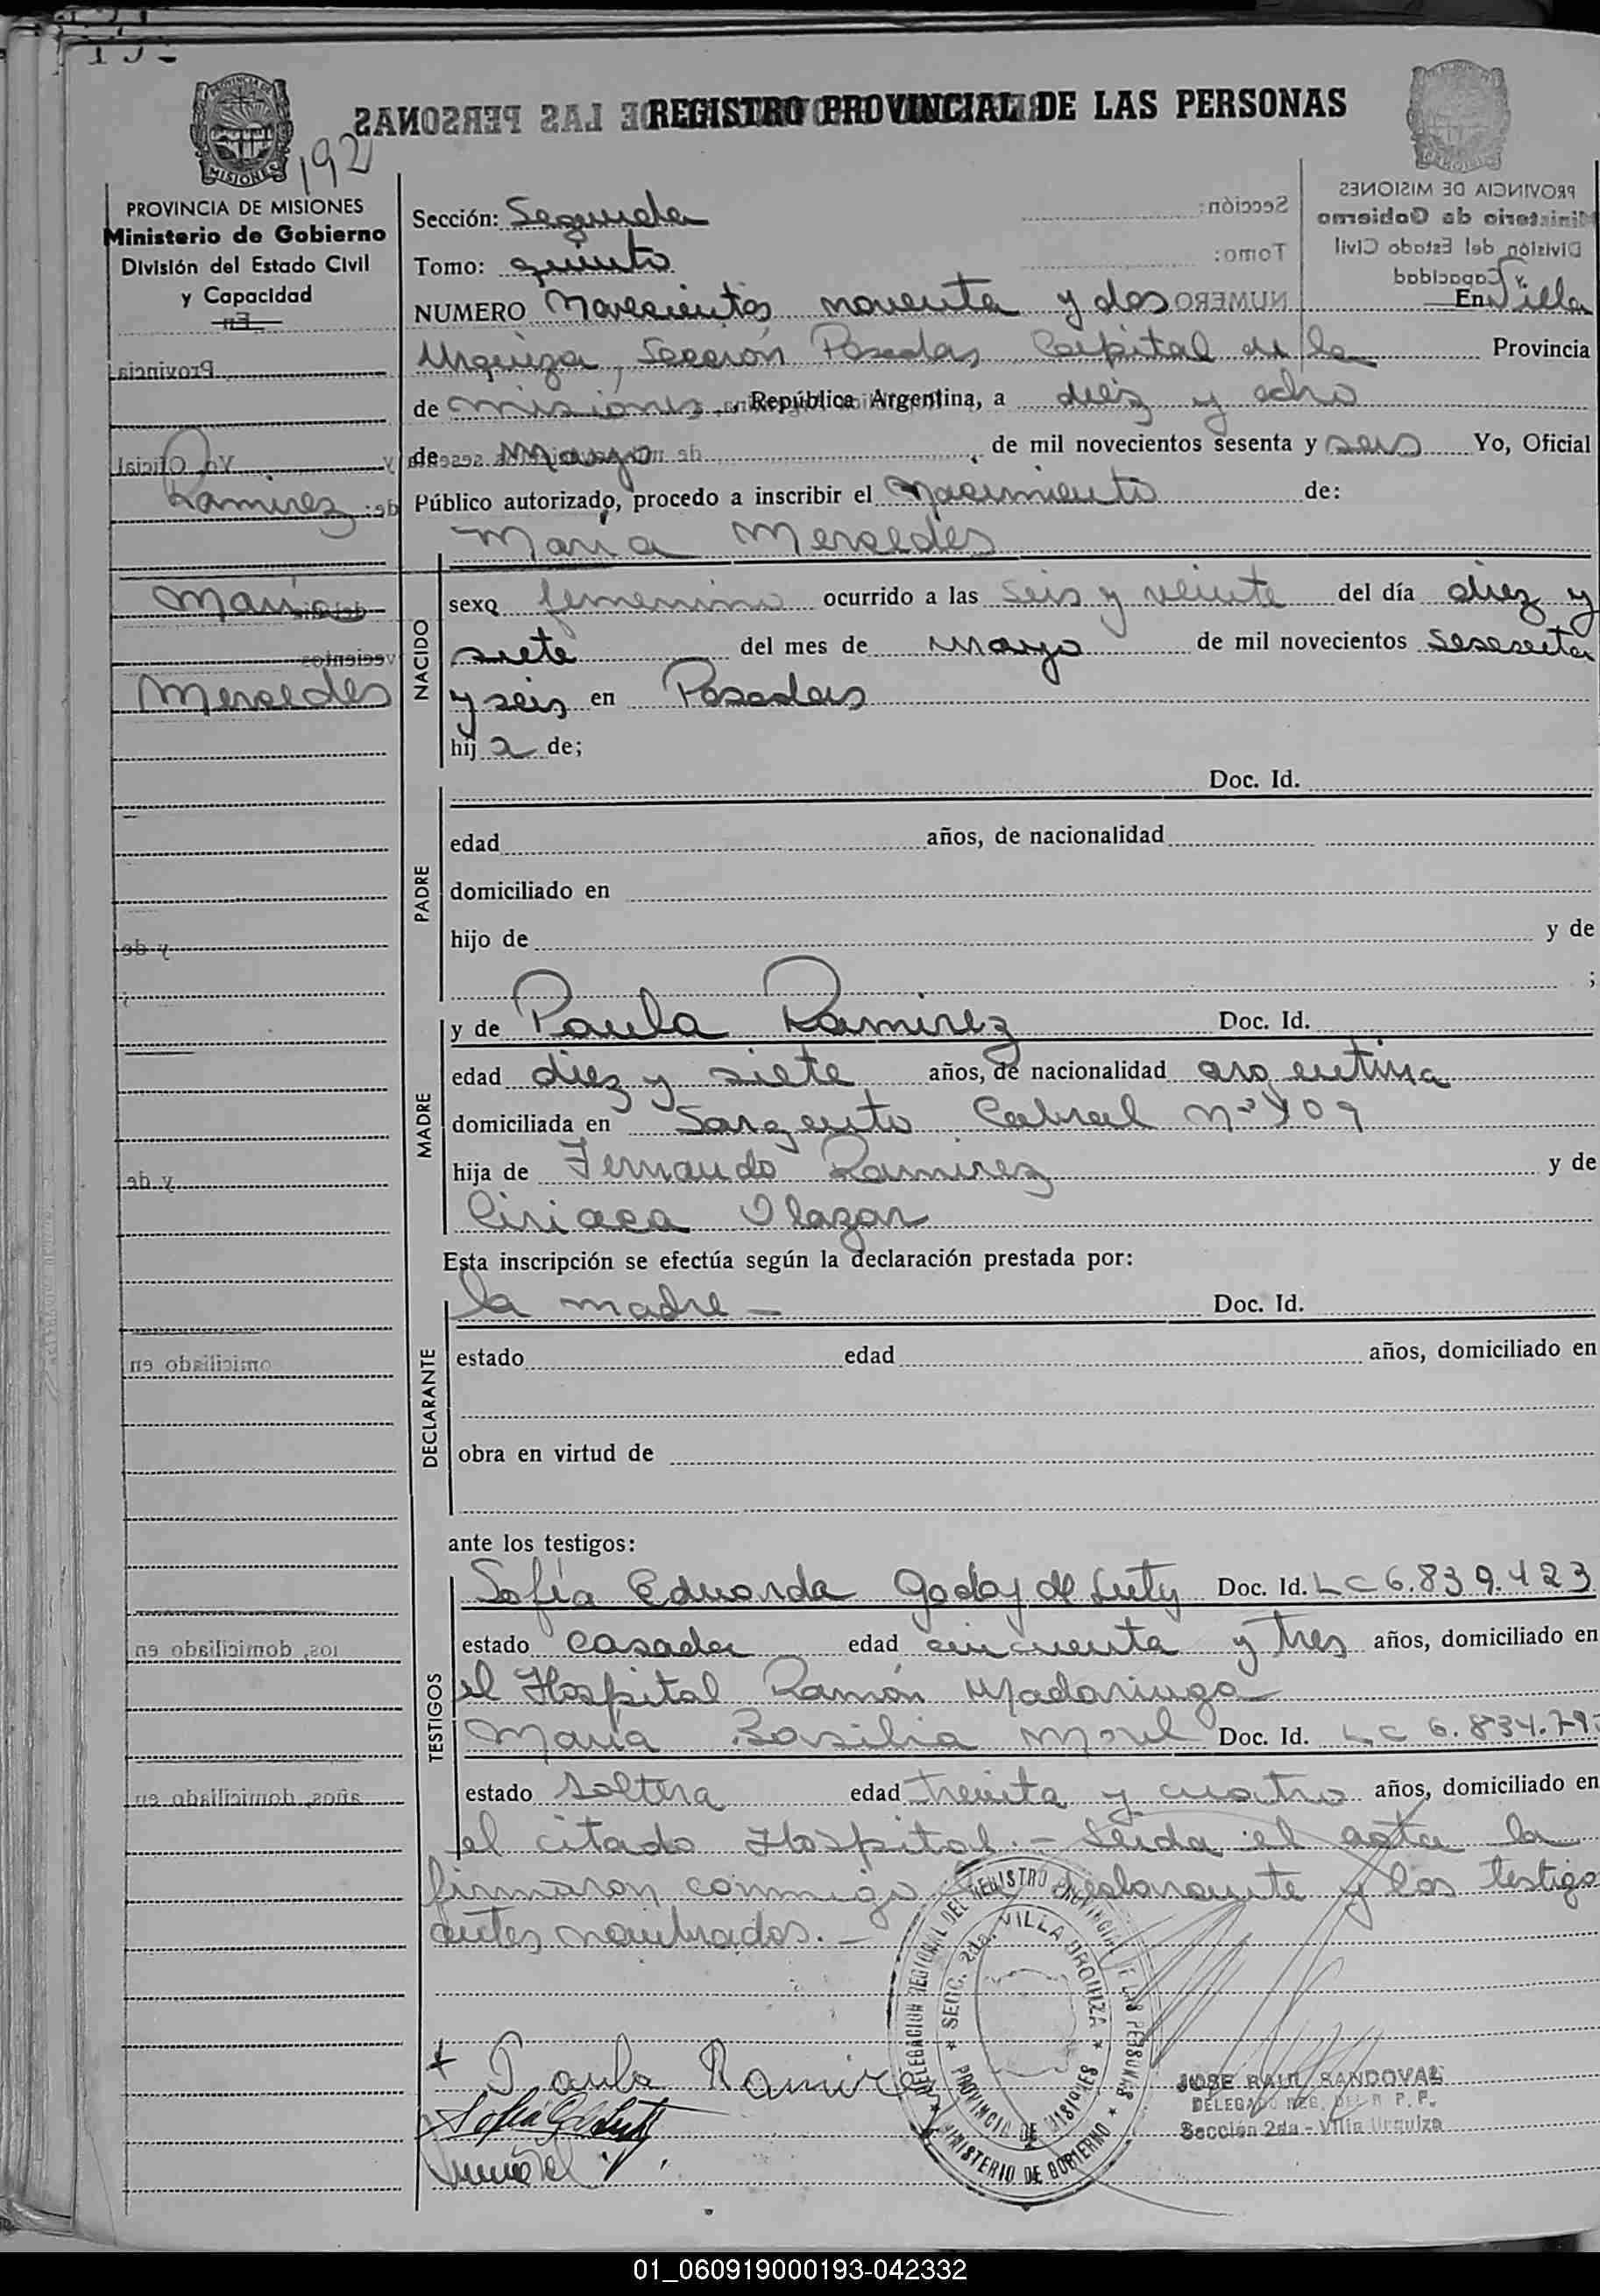 REGISTRO PROVINCIAL DE LAS PERSONAS
192
PROVINCIA DE MISIONES
Ministerio de Gobierno
División del Estado Civil
y Capacidad
En
Ramirez
María
Mercedes
Sección: Segunda
Tomo: quinto
NUMERO Novecientos noventa y dos En Villa
Urquiza, Sección Posadas Capital de la Provincia
de Misiones, República Argentina, a diez y ocho
de Mayo de mil novecientos sesenta y seis Yo, Oficial
Público autorizado, procedo a inscribir el Nacimiento de:
María Mercedes
NACIDO
sexo femenino ocurrido a las seis y veinte del día diez y
siete del mes de mayo de mil novecientos sesenta
y seis en Posadas
hija de;
PADRE
Doc. Id.
edad años, de nacionalidad
domiciliado en
hijo de y de
;
MADRE
y de Paula Ramirez Doc. Id.
edad diez y siete años, de nacionalidad argentina
domiciliada en Sargento Cabral Nº 909
hija de Fernando Ramirez y de
Ciriaca Olazar
Esta inscripción se efectúa según la declaración prestada por:
DECLARANTE
la madre - Doc. Id.
estado edad años, domiciliado en
obra en virtud de
ante los testigos:
TESTIGOS
Sofía Eduarda Godoy de Luty Doc. Id. LC 6.839.423
estado casada edad cincuenta y tres años, domiciliado en
el Hospital Ramón Madariaga
María Basilia Morel Doc. Id. LC 6.834.79
estado soltera edad treinta y cuatro años, domiciliado en
el citado Hospital.- Leida el acta la
firmaron conmigo la declarante y los testigo
antes nombrados.-
x Paula Ramirez
DELEGACION REGIONAL DEL REGISTRO PROVINCIAL DE LAS PERSONAS
MINISTERIO DE GOBIERNO
SECC. 2da. VILLA URQUIZA
PROVINCIA DE MISIONES
JOSE RAUL SANDOVAL
DELEGADO REG. DEL R. P. P.
Sección 2da - Villa Urquiza
01_060919000193-042332